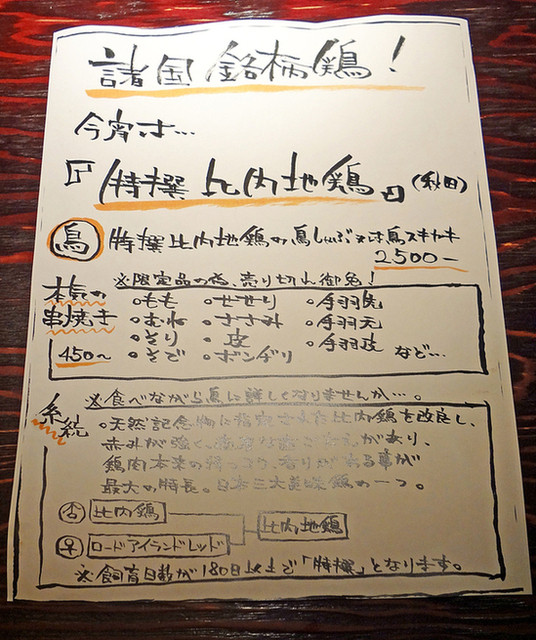 諸国銘柄鶏!
今宵は…
『特撰比内地鶏』(秋田)
鳥 特撰比内地鶏の鳥しゃぶ又は鳥スキヤキ
2500ー
※限定品の為、売り切れ御免!
本気の
串焼き
450〜
。もも 。せせり 。手羽先
。むね 。ささみ 。手羽元
。そり 。皮 。手羽皮
。さび 。ボンヂリ など…
※食べながら鳥に詳しくなりませんか…。
系統
。天然記念物に指定された比内鶏を改良し、
赤外が強く、があり、
鶏肉本来の持つコク、香りがある事が
最大の特長。日本三大美味鶏の一つ。
♂ 比内鶏
比内地鶏
♀ ロードアイランドレッド
※飼育日数が180日以上で「特撰」となります。